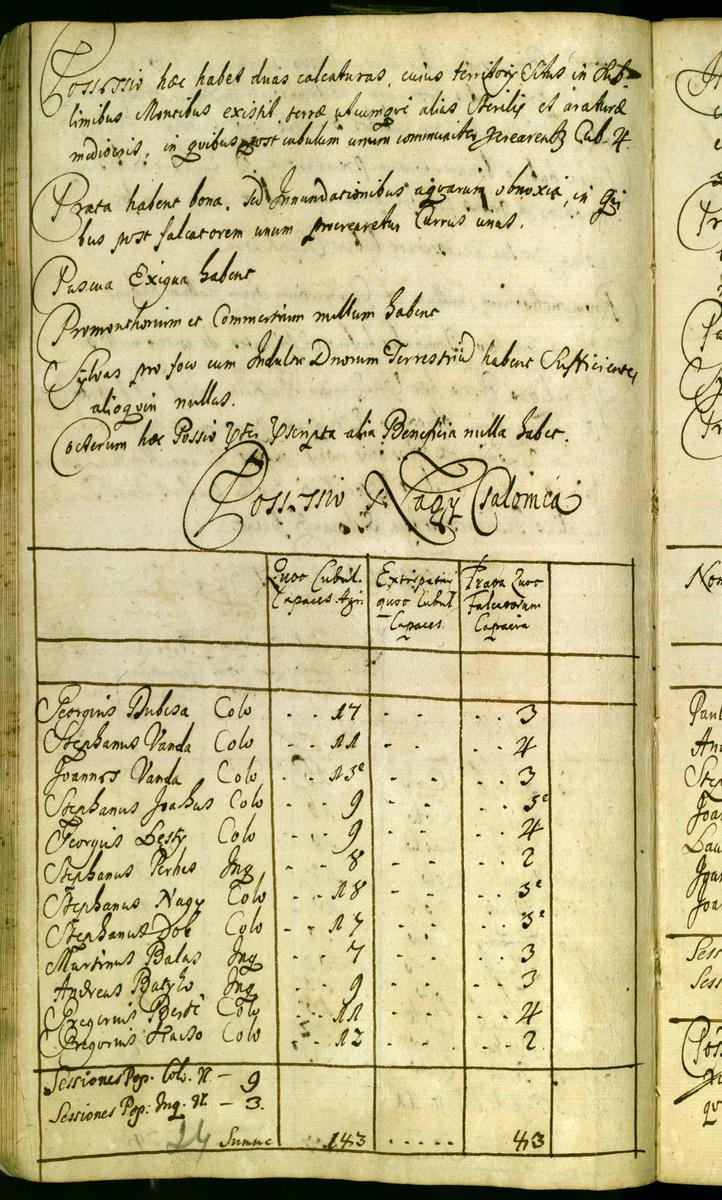 Possessio hæc habet duas calcaturas, cuius territorij Situs in Sub
limibus Montibus existit, terræ utcumque alias sterilis et araturæ
mediocris, in quibus post cubulum unum communiter Cub. 4
Prata habent bona, sed Innundationibus aquarum obnoxia, in Qui
bus post falcatorem unum procrearetur Currus unus.
Pascua Exigua habent
Promonthorium et Commertium nullum habent
Sylvas pro foco cum Indultu Dnorum Terrestriū habent Sufficientes,
alioquin nullus.
Cæterum hæc Possio alia Beneficia nulla habet.
Possessio Nagy Csalomia
Quot Cubul. Capaces Agri
Extirpatity quot Cubul Capaces
Prata Quot Falcatorum Capacia
Georgius Dubcsa Colo - - 17 - - - - 3
Stephanus Vanda Colo - - 11 - - - - 4
Joannes Vanda Colo - - 15 - - - - 3
Stephanus Joahus Colo - - 9 - - - - 5
Georgius Lesty Colo - - 9 - - - - 4
Stephanus Perhes Inq - - 8 - - - - 2
Stephanus Nagy Colo - - 18 - - - - 5
Stephanus Dob Colo - - 17 - - - - 3
Martinus Balas Inq - - 7 - - - - 3
Andreas Batyko Inq - - 9 - - - - 3
Gregorius Colo - - 11 - - - - 4
Gregorius Colo - - 12 - - - - 2
Sessiones Pop. Col. N - 9
Sessiones Pop: Inq. N - 3.
24 Summa 143 - - - - - 43